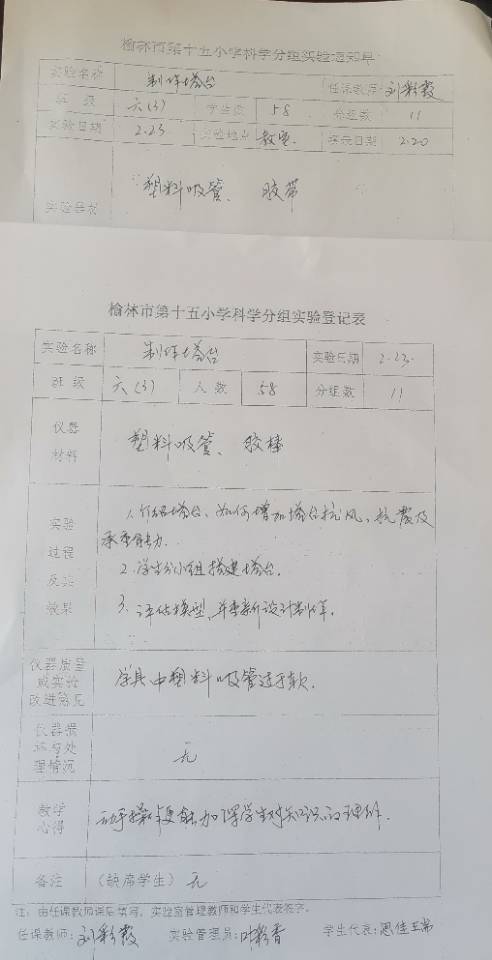 榆林市第十五小学科学分组实验通知单
实验名称 制作塔台 任课教师 刘彩霞
班 级 六(3) 学生数 58 分组数 11
实验日期 2.23 实验地点 教室. 2.20
塑料吸管、 胶带
实验器材
榆林市第十五小学科学分组实验登记表
实验名称 制作塔台 实验日期 2.23.
班 级 六(3) 人 数 58 分组数 11
仪器
材料
塑料吸管、胶棒
实验
过程
及其
效果
1.介绍塔台、如何增加塔台抗风、抗震及
承重能力.
2.学生分小组搭建塔台.
3.评估模型,并重新设计制作.
仪器质量
或实验
改进意见
学具中塑料吸管过于软.
仪器损
坏与处
理情况
无
教学
心得
动手操作更能加深学生对知识的理解.
备注 (缺席学生) 无
注：由任课教师课后填写，实验室管理教师和学生代表签字。
任课教师：刘彩霞 实验管理员：叶彩香 学生代表：